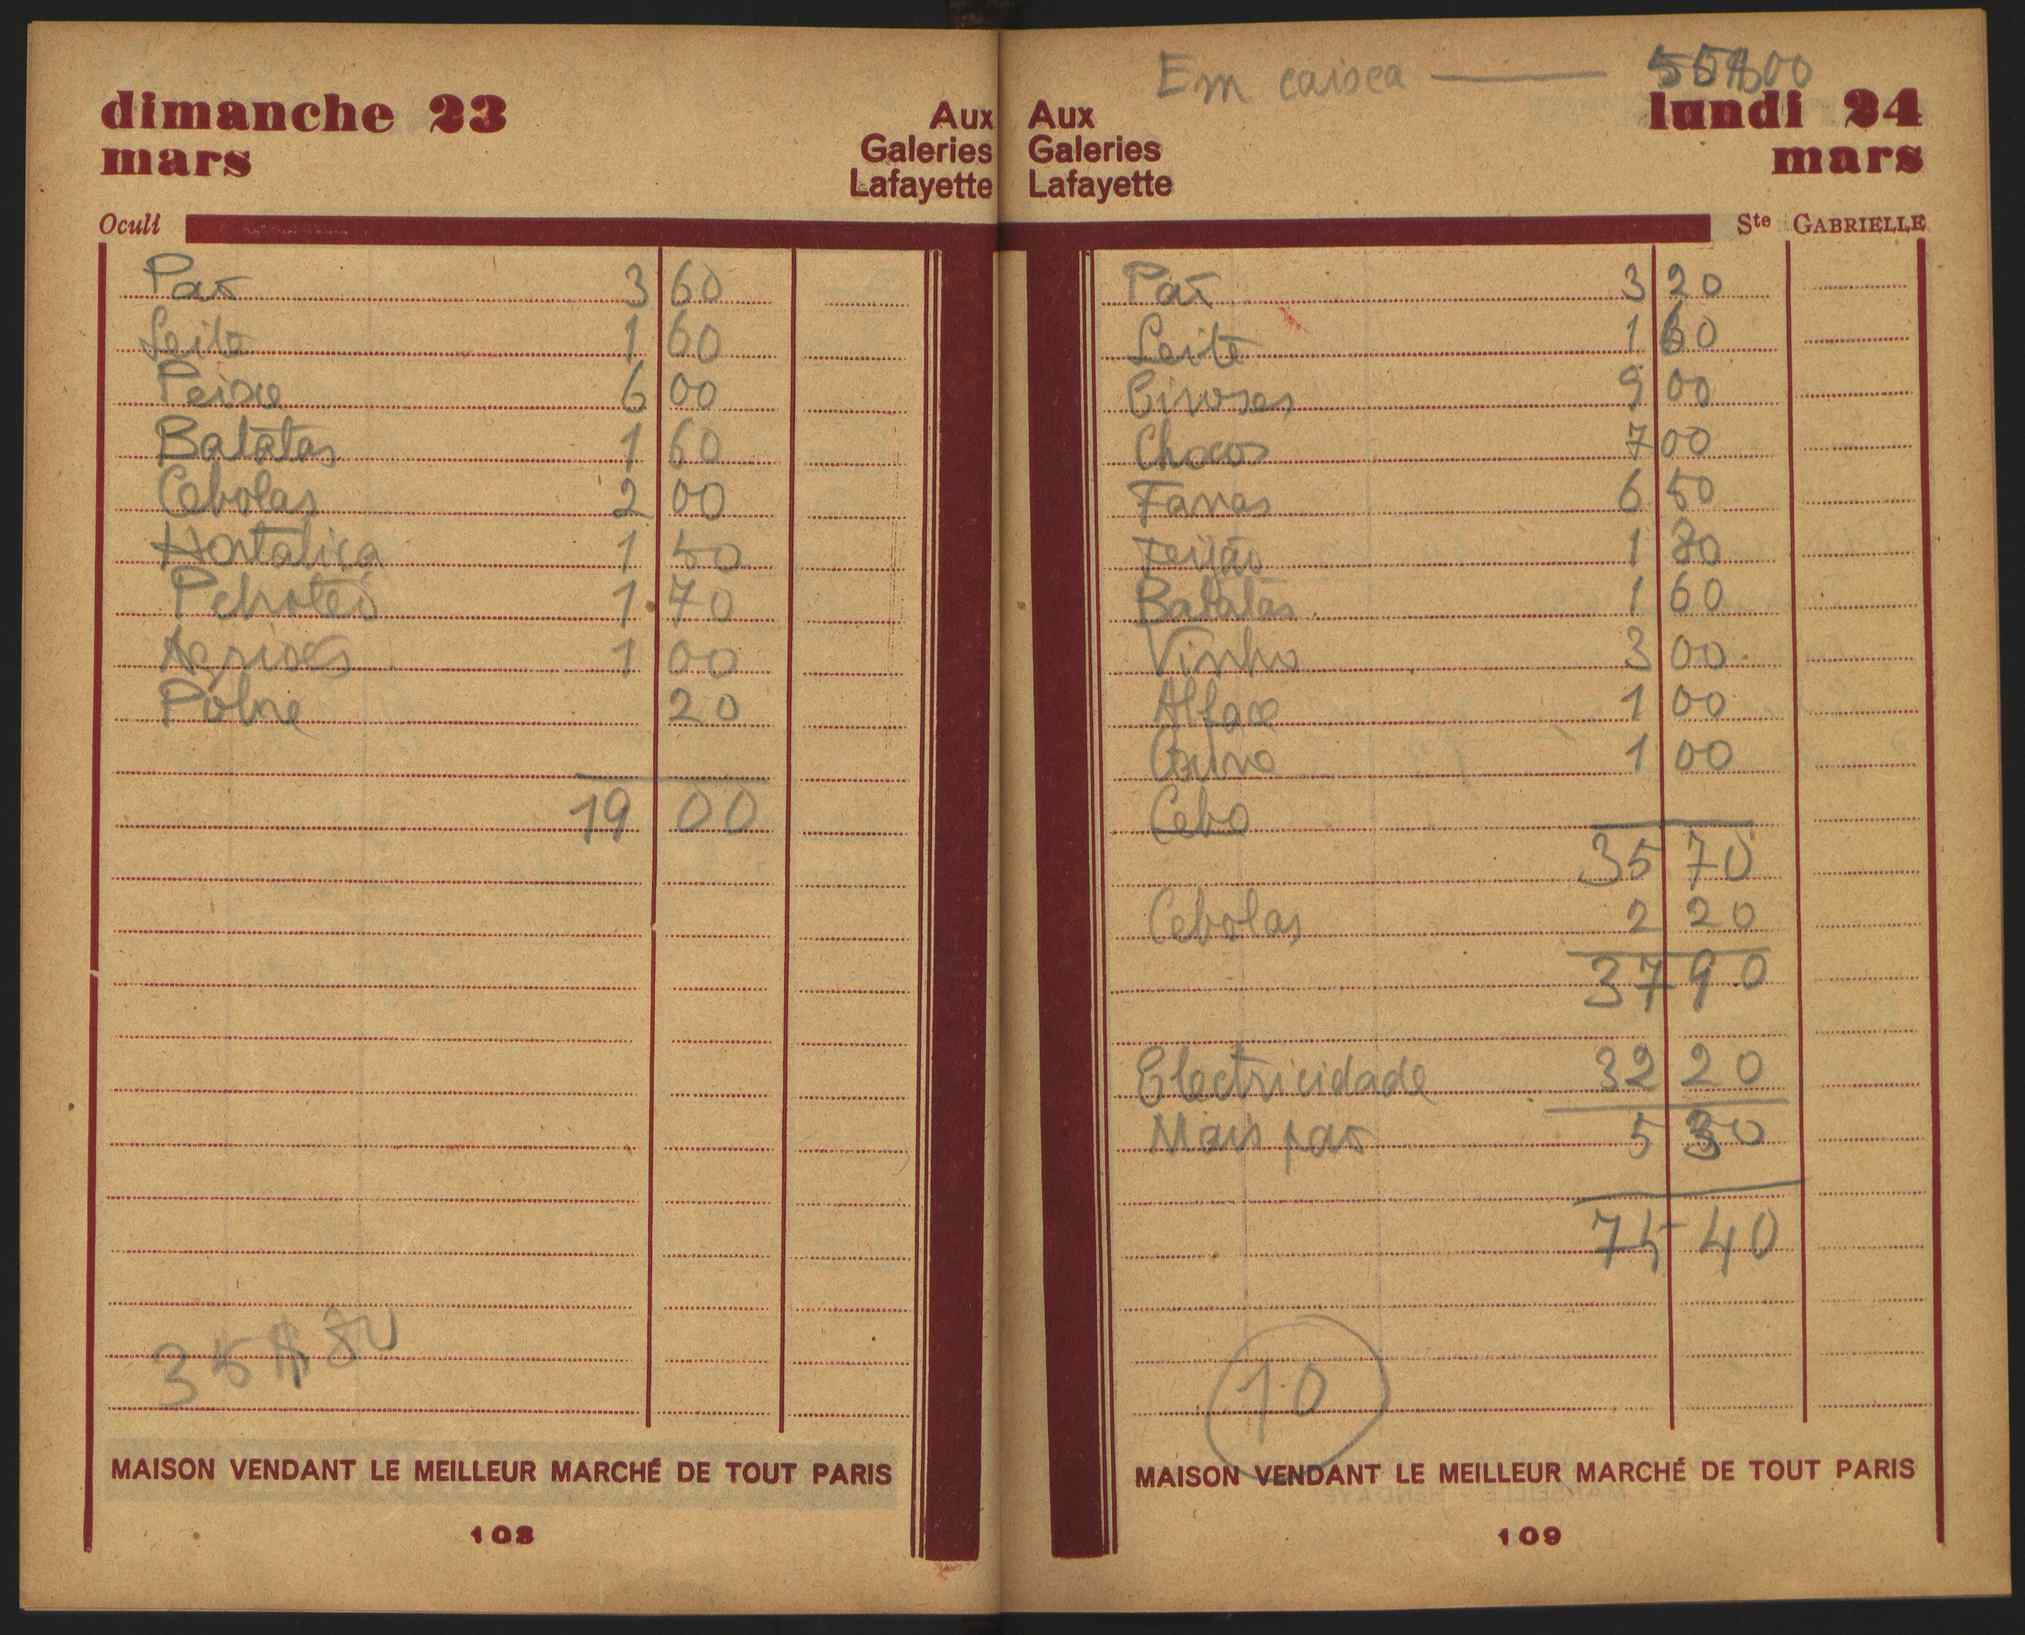 dimanche 23
mars
Aux
Galeries
Lafayette
Oculi
Pao 3 60
Leite 1 60
Peixe 6 00
Batatas 1 60
Cebolas 2 00
Hortaliça 1 50
1 70
Agrioes 1 00
20
19 00
35$80
MAISON VENDANT LE MEILLEUR MARCHÉ DE TOUT PARIS
108
Em caixa — 55$00
Aux
Galeries
Lafayette
lundi 24
mars
Ste GABRIELLE
Pão 3 20
Leite 1 60
9 00
Chocos 7 00
Favas 6 50
Feijão 1 80
Batatas 1 60
Vinho 3 00
Alface 1 00
1 00
Cebo
35 70
Cebolas 2 20
37 90
Electricidade 32 20
Mais pao 5 30
75 40
10
MAISON VENDANT LE MEILLEUR MARCHÉ DE TOUT PARIS
109